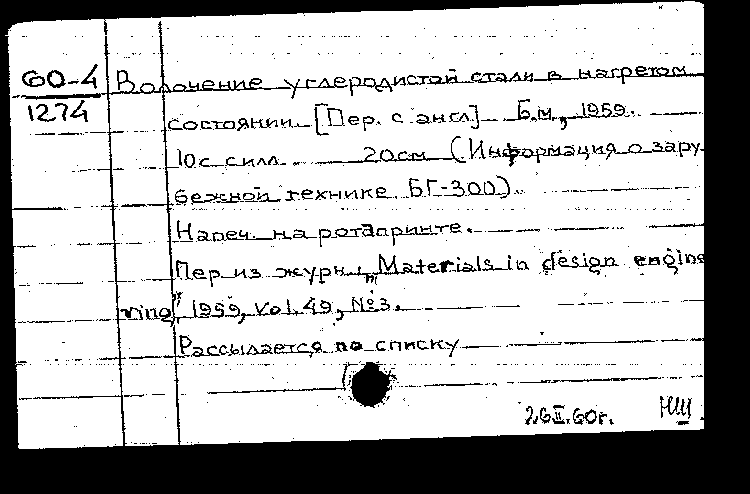 60-4
1274
Волочение углеродистой стали в нагретом
состоянии. [Пер. с англ] Б.м., 1959.
10 с илл. 20см (Информация о зару-
бежной технике БГ-300).
Напеч. на ротапринте.
Пер из журн: "Materials in design engine
ring", 1959, Vol. 49, №3.
Рассылается по списку
26 II.60г.